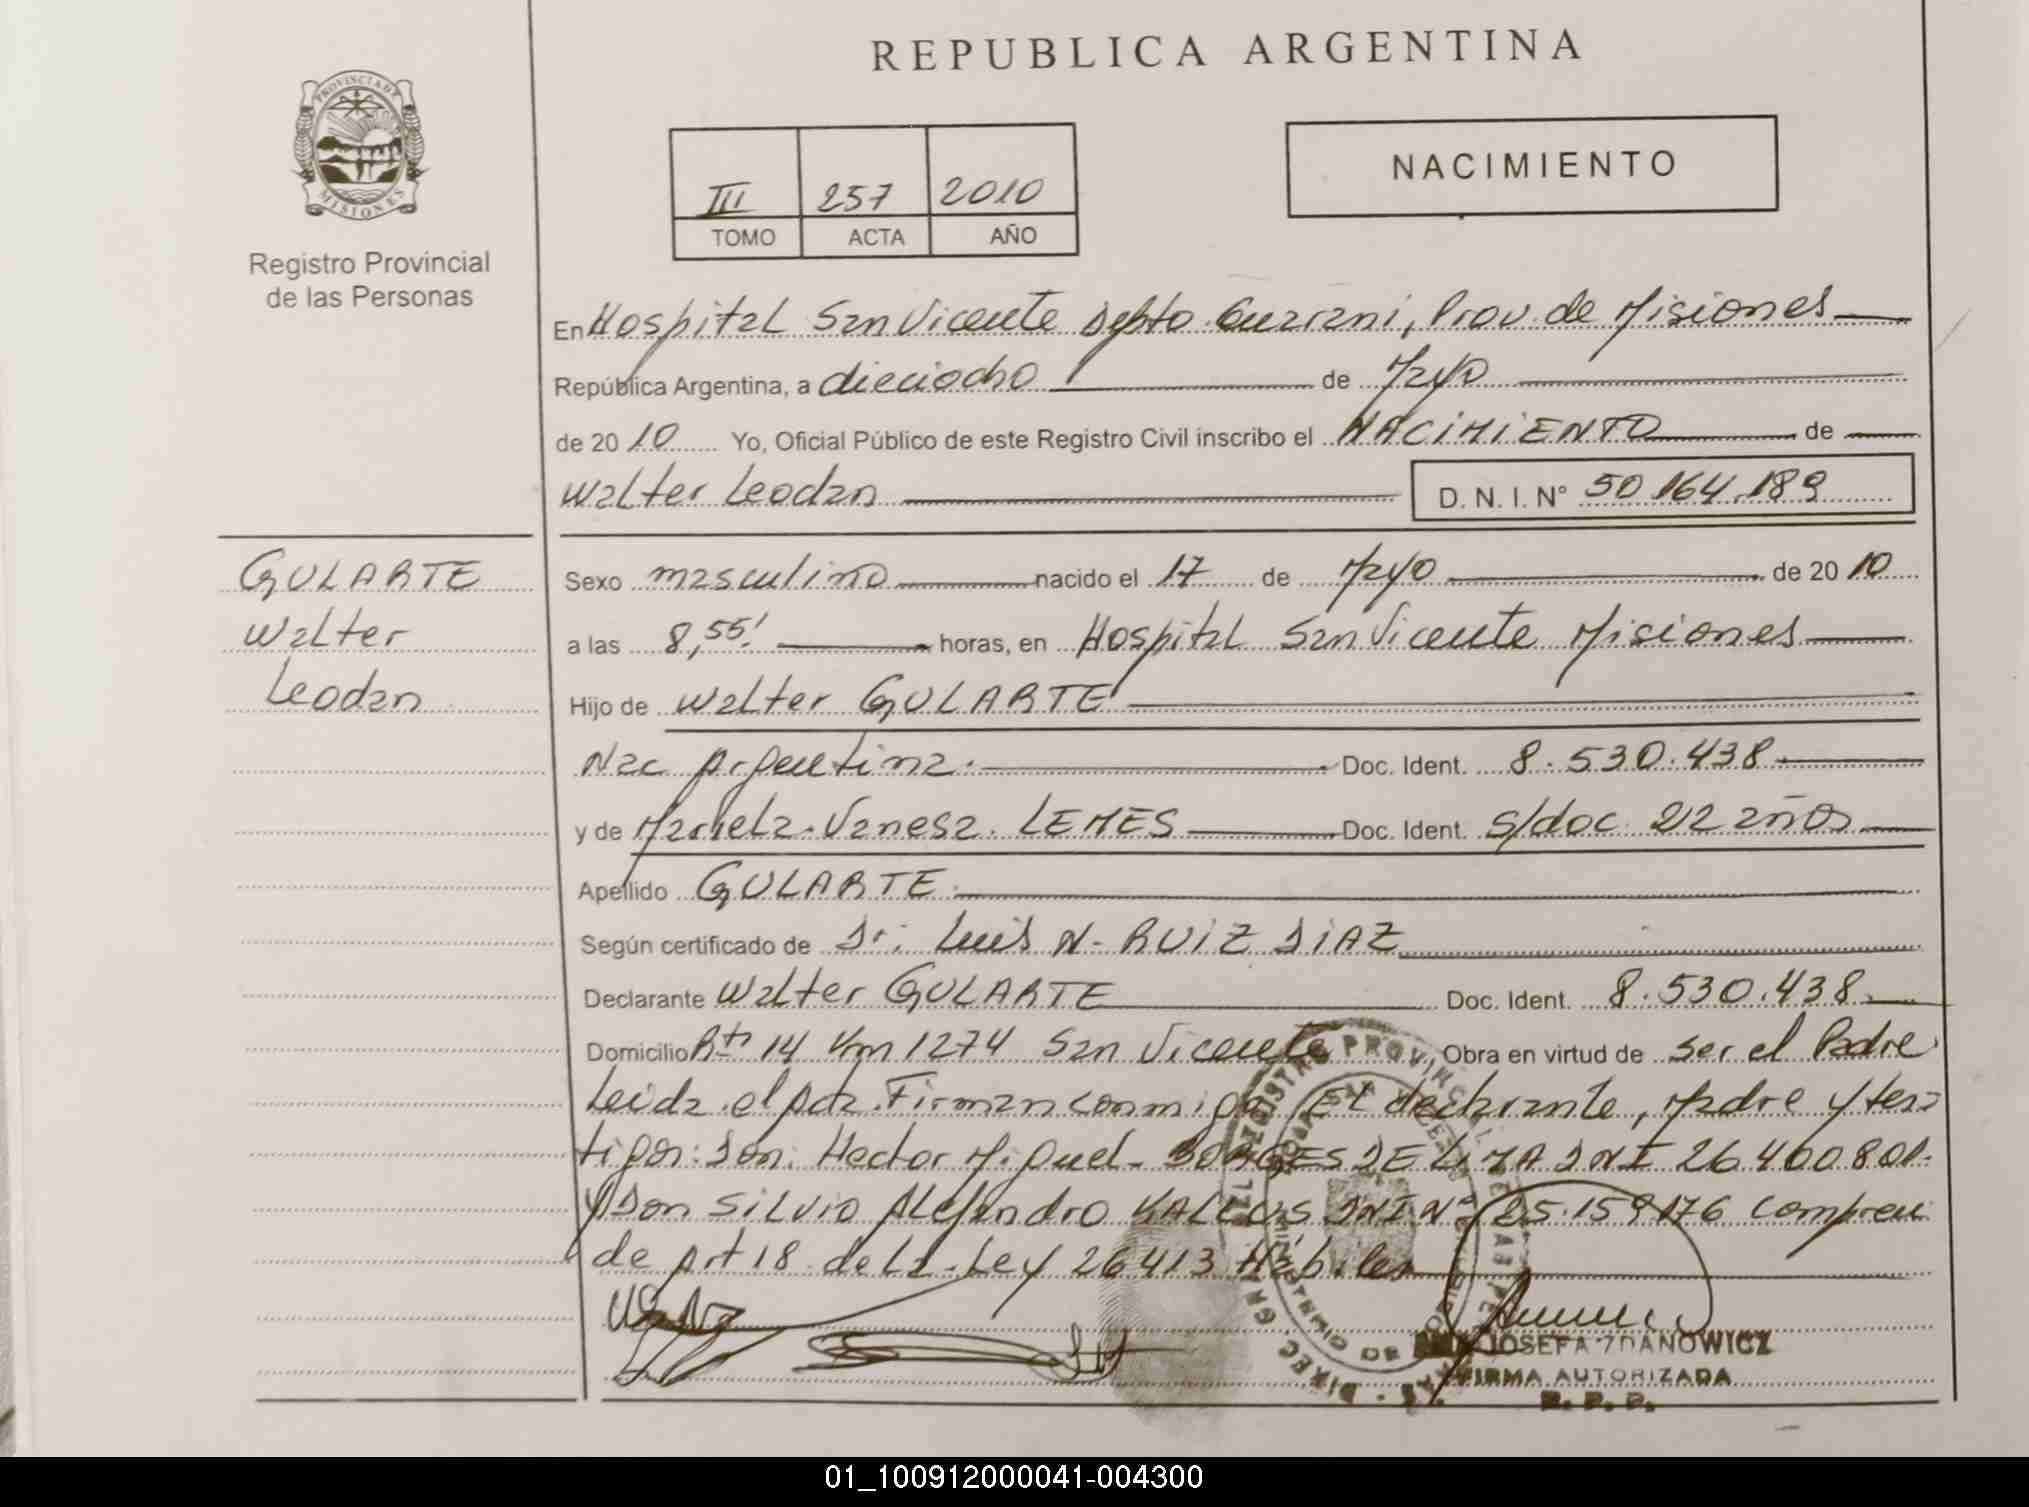 REPUBLICA ARGENTINA
PROVINCIA DE
MISIONES
Registro Provincial
de las Personas
III 257 2010
TOMO ACTA AÑO
NACIMIENTO
En Hospital San Vicente Depto Guarani, Prov. de Misiones
República Argentina, a dieciocho de Mayo
de 2010 Yo, Oficial Público de este Registro Civil inscribo el NACIMIENTO de
Walter Leodan D. N. I. N° 50.164.189
GULARTE
Walter
Leodan
Sexo masculino nacido el 17 de Mayo de 2010
a las 8,55' horas, en Hospital San Vicente Misiones
Hijo de Walter GULARTE
Nac Argentina. Doc. Ident. 8.530.438
y de Mariela Vanesa LEMES Doc. Ident. s/doc 22 años
Apellido GULARTE
Según certificado de Dr: Luis N. RUIZ DIAZ
Declarante Walter GULARTE Doc. Ident. 8.530.438
Domicilio Rta 14 Km 1274 San Vicente, Obra en virtud de ser el Padre
Leida el Acta. Firman conmigo El declarante, Madre y tes
tigos: Don. Hector Miguel BORGES DE LIMA DNI 26.460.801
y Don Silvio Alejandro KALLUS DNI N° 25.159.176 compren
de Art 18 de la Ley 26413 Hábiles
JOSEFA ZDANOWICZ
FIRMA AUTORIZADA
R. P. P.
01_100912000041-004300